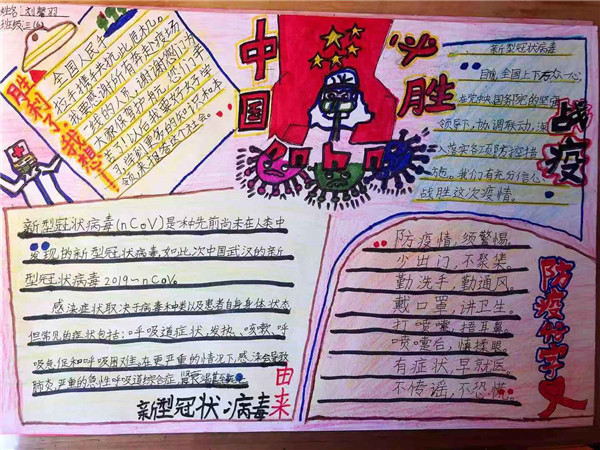 姓名:刘馨羽
班级:三(6)
胜利了,我想!!
全国人民手
拉手携手共抗此危机。
我要感谢所有奔走战场
一线的人员,谢谢您们为
大家保驾护航,您们辛
苦了!以后我要好好学
习
领来报答这个社会。
中国
必胜
新型冠状病毒
目前,全国上下万众一心,
在党中央国务院的坚强
领导下,协调联动,深
入落实各项防控措
施。我们有充分信心
战胜这次疫情。
战疫
新型冠状病毒(nCoV)是一种先前尚未在人类中
发现的新型冠状病毒,如此次中国武汉的新
型冠状病毒2019-nCoV。
感染症状取决于病毒种类以及患者自身身体状态
但常见的症状包括:呼吸道症状、发热、咳嗽、呼
吸急促和呼吸困难,在更严重的情况下,感染会导致
肺炎,严重的急性呼吸道综合症,肾衰竭甚至死亡。
新型冠状病毒
由来
防疫情,须警惕。
少出门,不聚集。
勤洗手,勤通风。
戴口罩,讲卫生。
打喷嚏,捂耳鼻。
喷嚏后,慎揉眼。
有症状,早就医。
不传谣,不恐慌。
防疫三字文